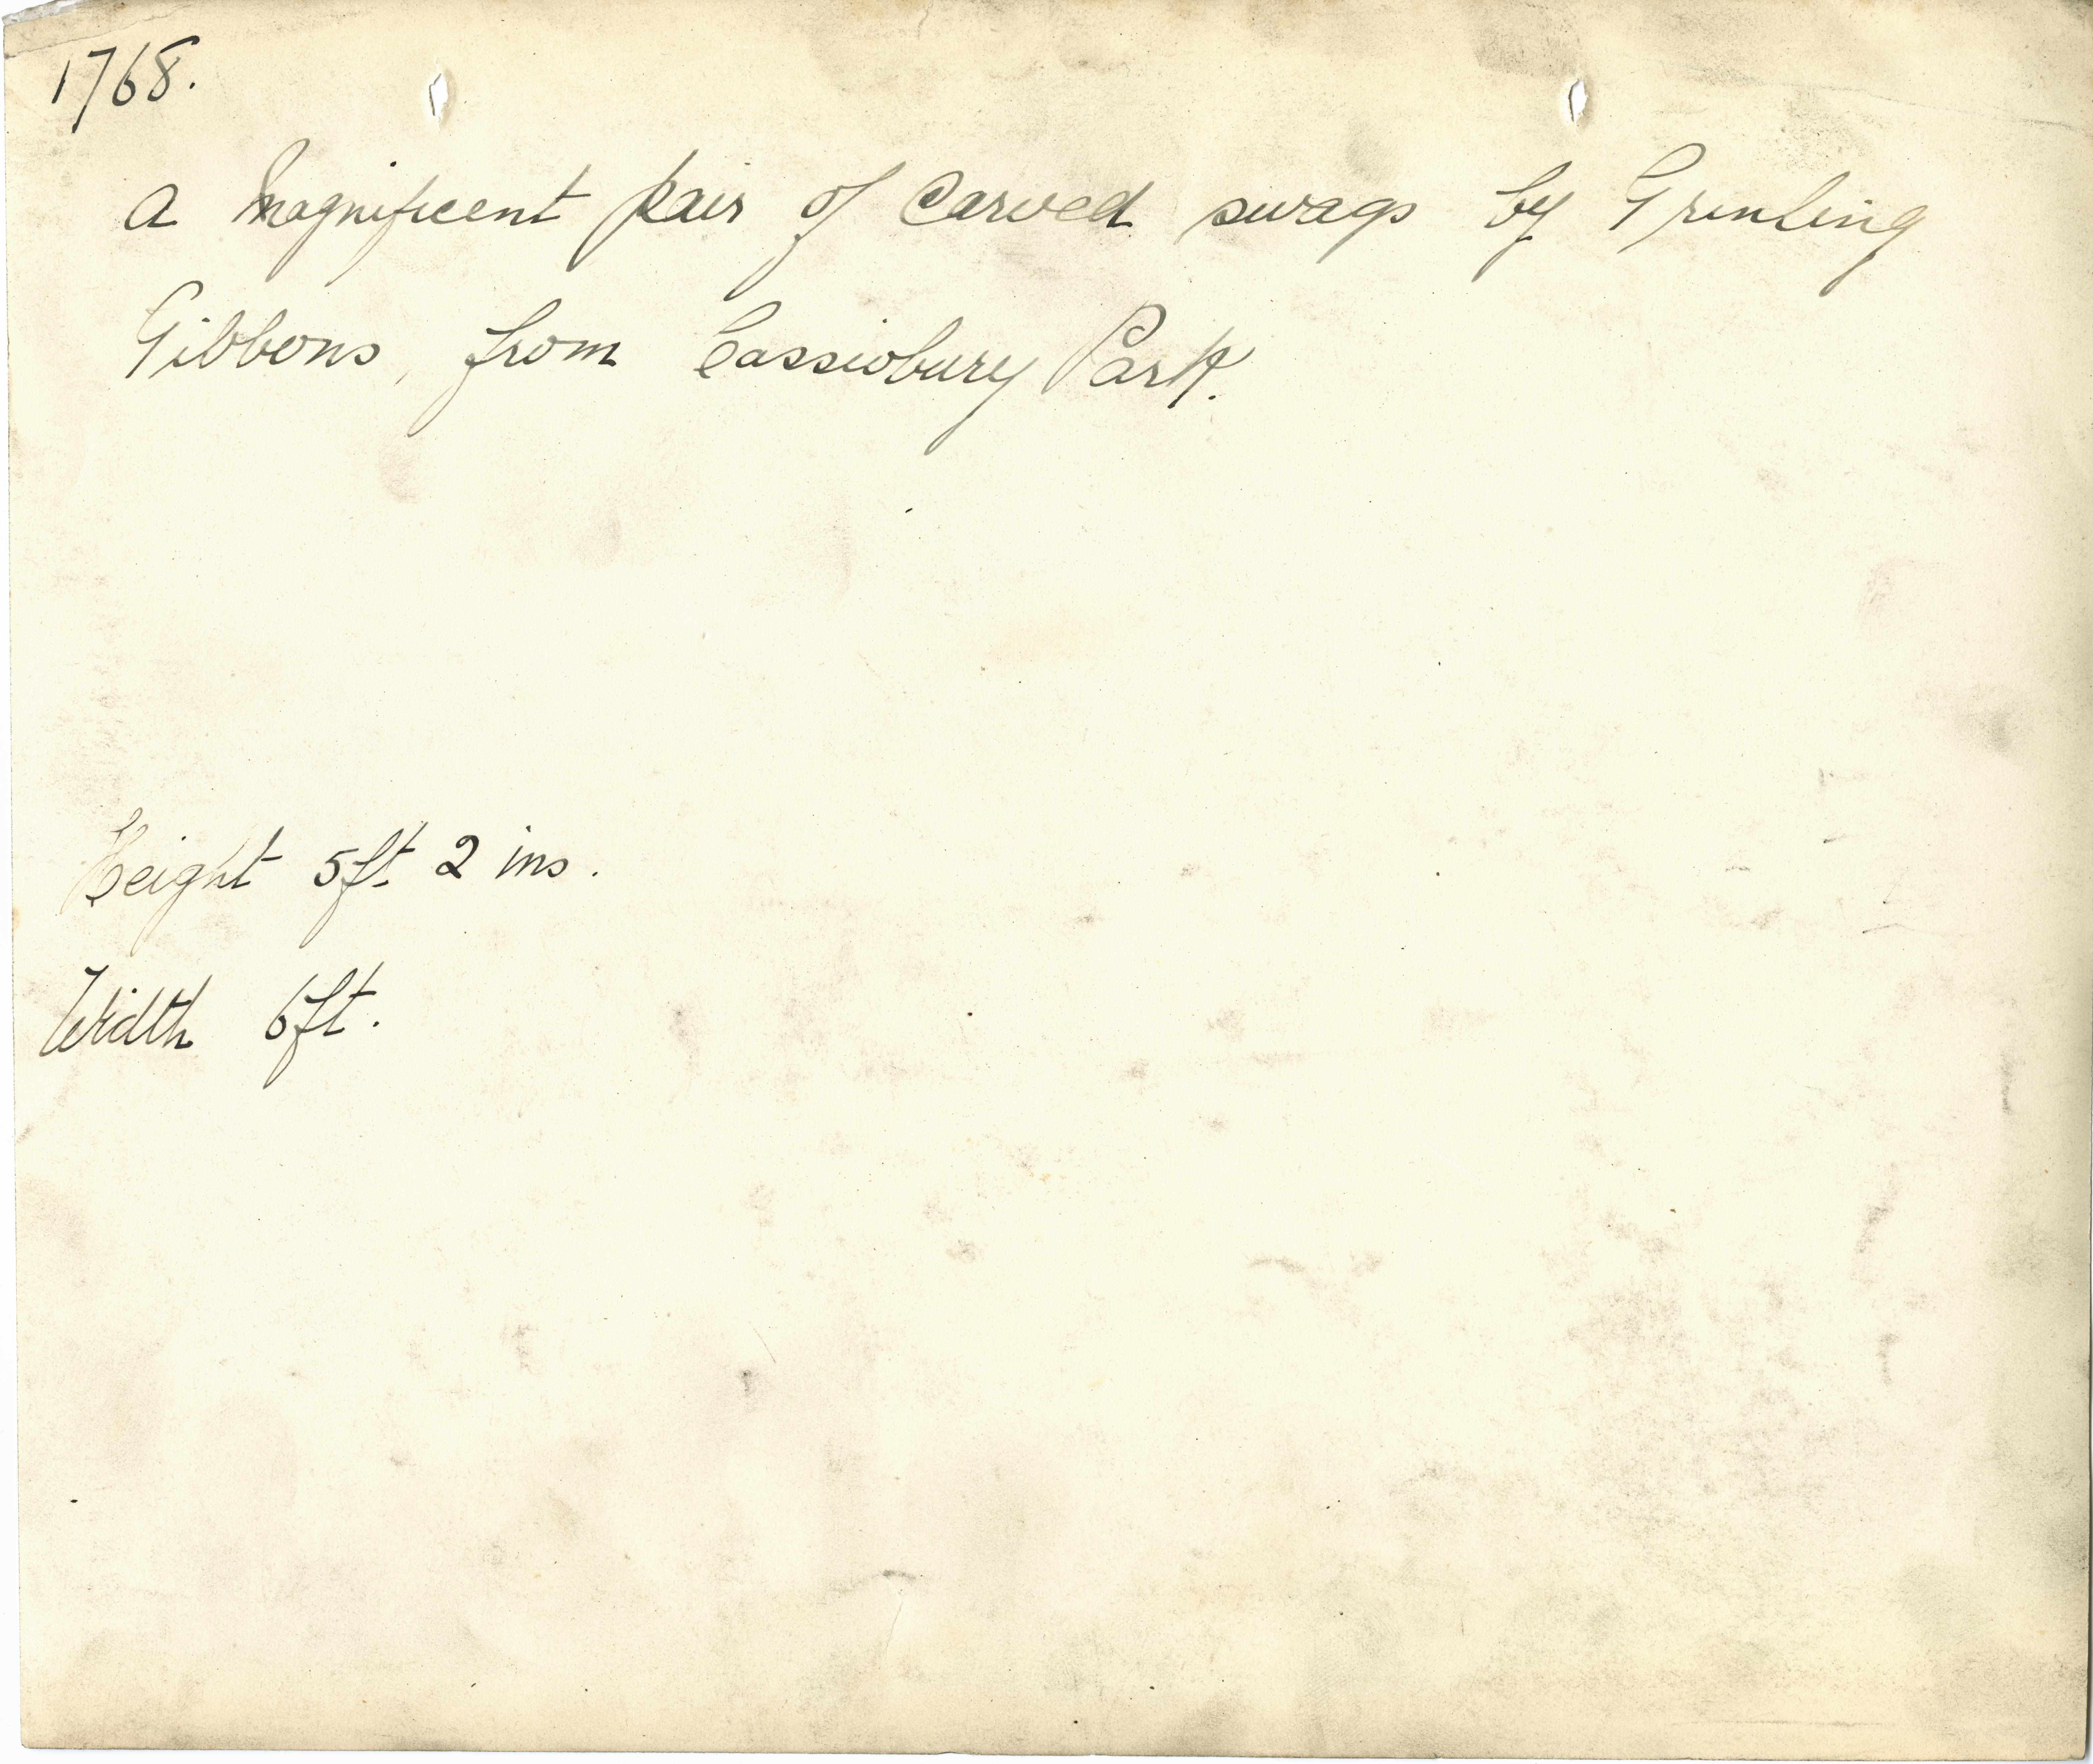 1768.
A Magnificent pair of Carved swags by Grinling
Gibbons, from Cassiobury Park.
Height 5ft 2 ins.
Width 6ft.